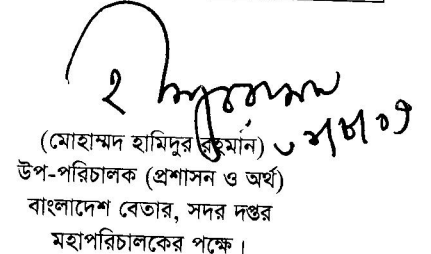 (মোহাম্মদ হামিদুর রহমান)
উপ-পরিচালক (প্রশাসন ও অর্থ)
বাংলাদেশ বেতার, সদর দপ্তর
মহাপরিচালকের পক্ষে।